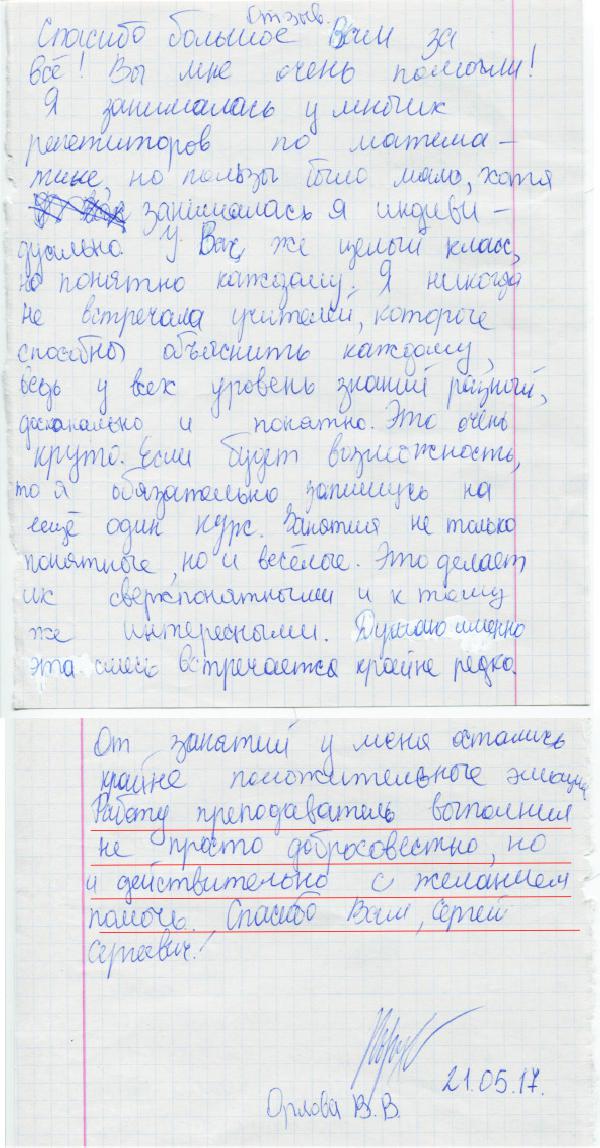 Отзыв.
Спасибо большое Вам за
всё! Вы мне очень помогли!
Я занималась у многих
репетиторов по матема-
тике, но пользы было мало, хотя
занималась я индиви-
дуально. У Вас же целый класс,
но понятно каждому. Я никогда
не встречала учителей, которые
способны объяснить каждому,
ведь у всех уровень знаний разный,
досканально и понятно. Это очень
круто. Если будет возможность,
то я обязательно запишусь на
ещё один курс. Занятия не только
понятные, но и весёлые. Это делает
их сверхпонятными и к тому
же интересными. Думаю именно
эта смесь встречается крайне редко.
От занятий у меня остались
крайне положительные эмоции.
Работу преподаватель выполнил
не просто добросовестно, но
и действительно с желанием
помочь. Спасибо Вам, Сергей
Сергеевич!
21.05.17.
Орлова В.В.